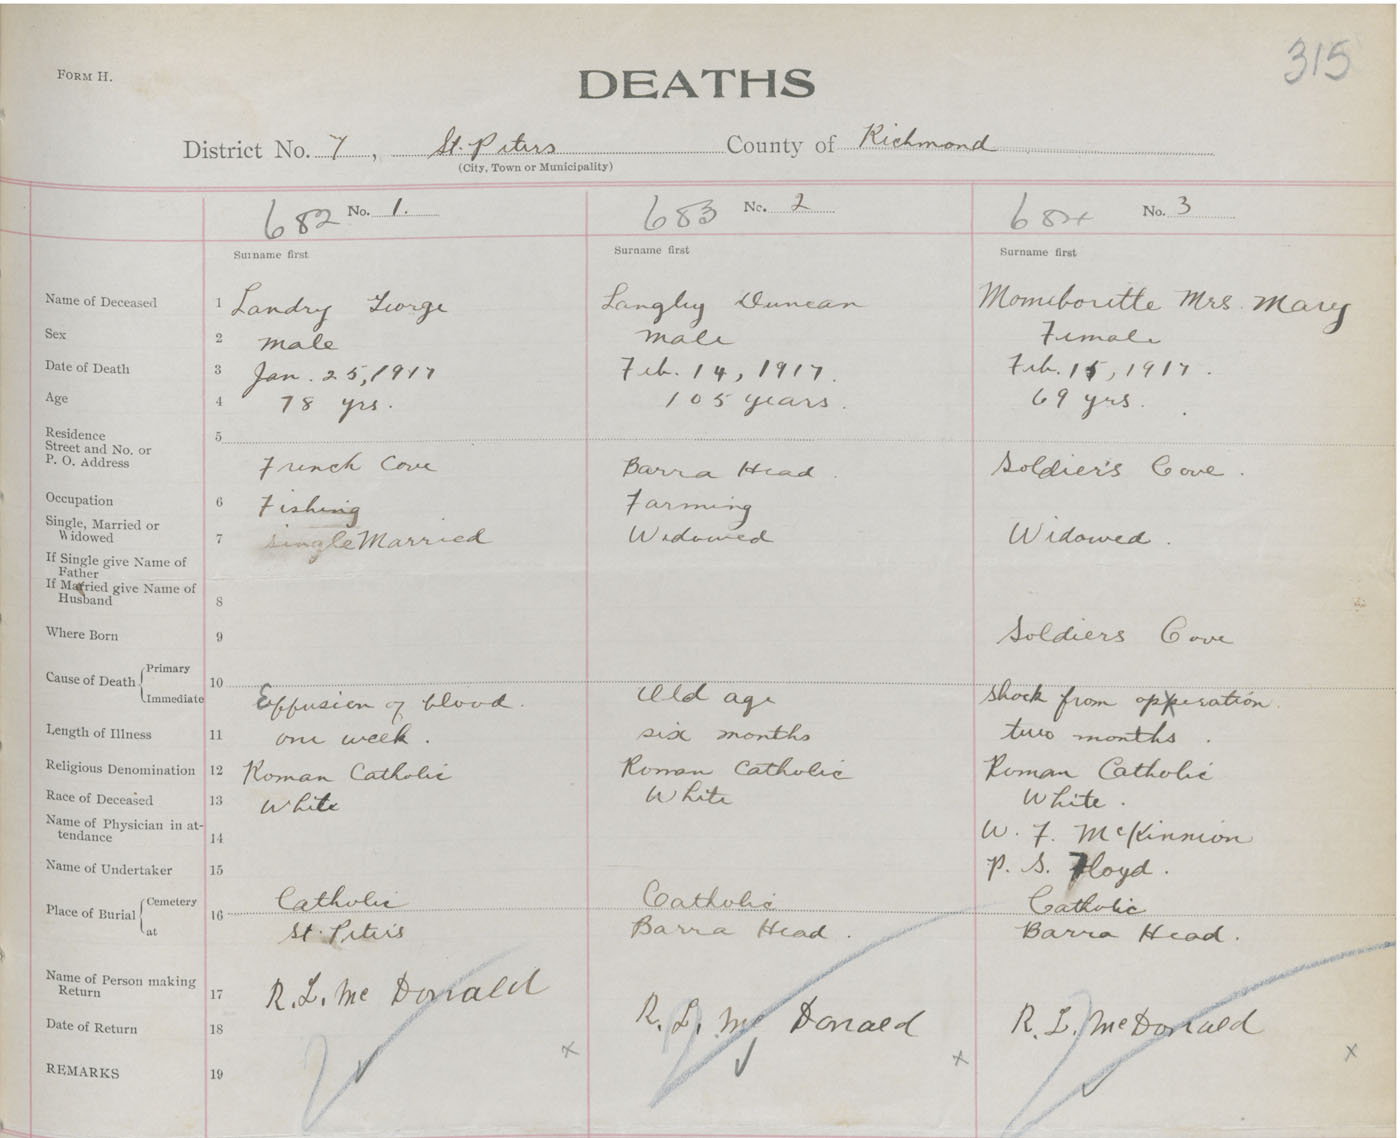 315
FORM H.
DEATHS
District No. 7, St. Peters County of Richmond
(City, Town or Municipality)
682 No. 1. 683 No. 2 684 No. 3
Surname first Surname first Surname first
Name of Deceased 1 Landry George Langley Duncan Momibourtte Mrs. Mary
Sex 2 male male Female
Date of Death 3 Jan. 25, 1917 Feb. 14, 1917. Feb. 15, 1917.
Age 4 78 yrs. 105 years. 69 yrs.
Residence 5
Street and No. or
P. O. Address French Cove Barra Head. Soldier's Cove.
Occupation 6 Fishing Farming
Single, Married or
Widowed 7 single Married Widowed Widowed.
If Single give Name of
Father
If Married give Name of
Husband 8
Where Born 9 Soldiers Cove
Cause of Death Primary 10
Immediate Effusion of blood. Old age Shock from opperation.
Length of Illness 11 one week. six months two months.
Religious Denomination 12 Roman Catholic Roman Catholic Roman Catholic
Race of Deceased 13 White White White.
Name of Physician in at-
tendance 14 W. F. McKinnion
Name of Undertaker 15 P. S. Floyd.
Place of Burial Cemetery 16 Catholic Catholic Catholic
at St. Peter's Barra Head. Barra Head.
Name of Person making
Return 17 R. L. McDonald R. L. McDonald R. L. McDonald
Date of Return 18
REMARKS 19